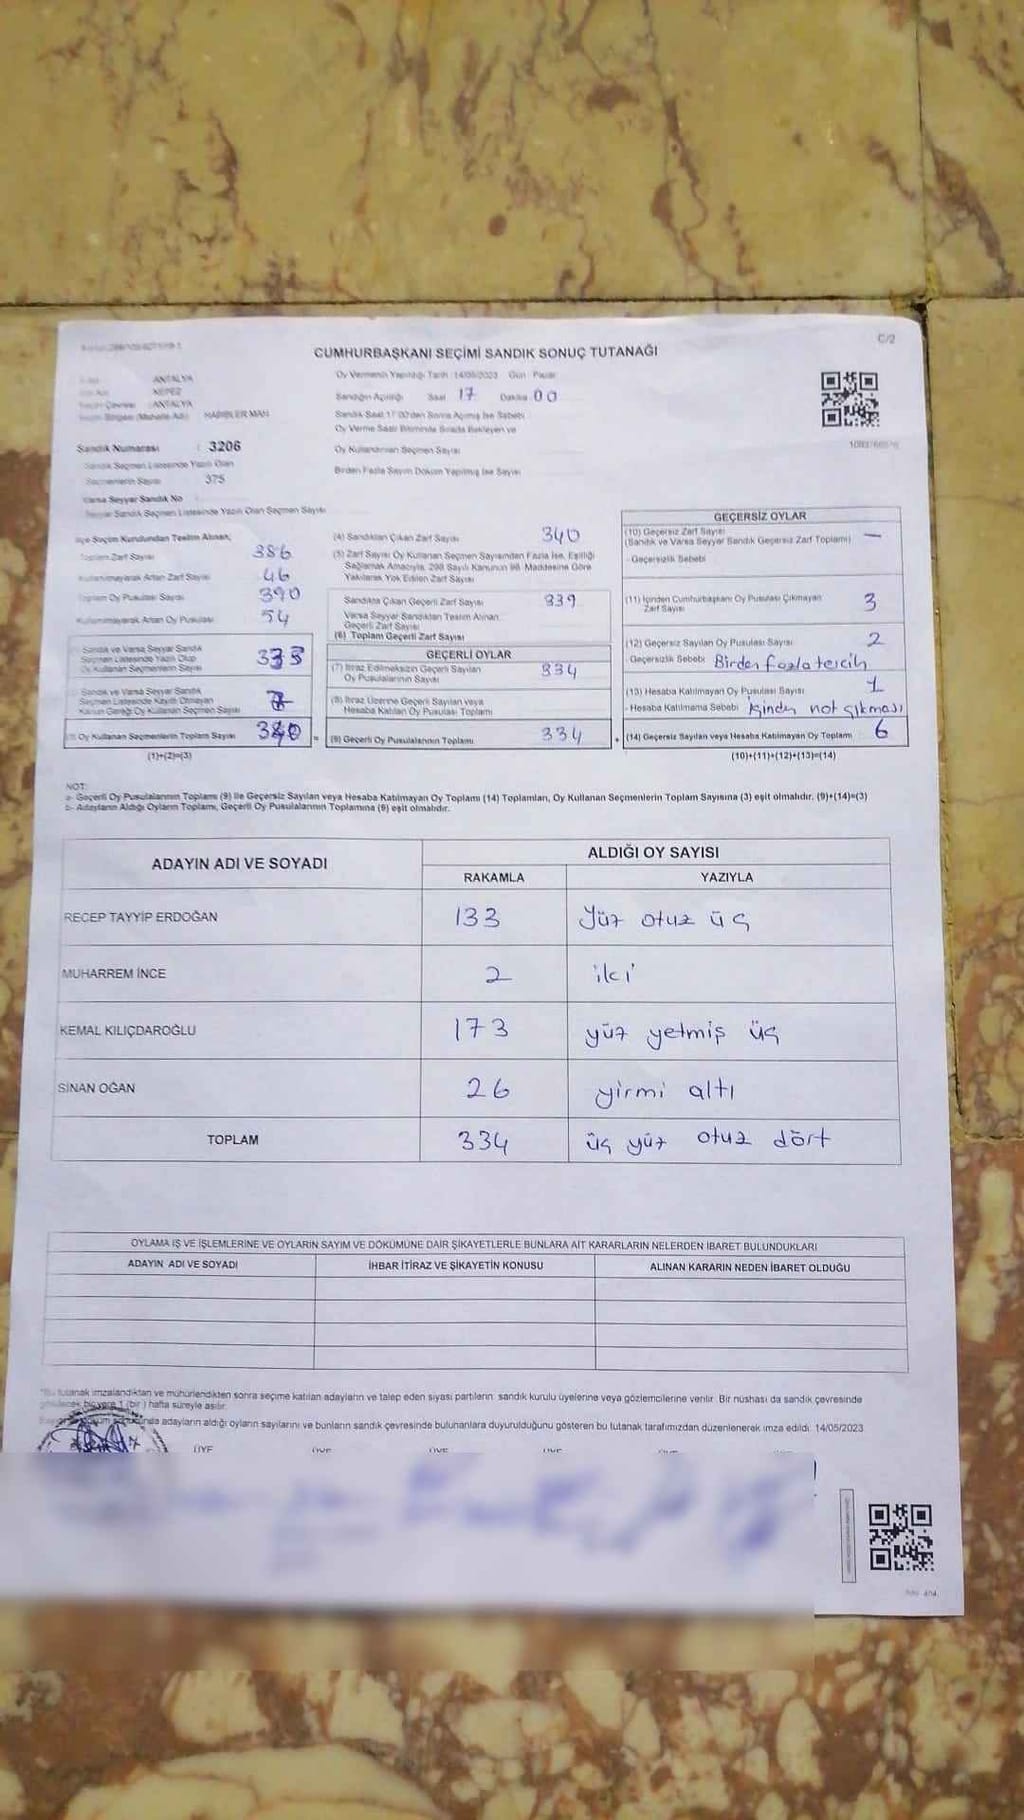 C/2
CUMHURBAŞKANI SEÇİMİ SANDIK SONUÇ TUTANAĞI
ANTALYA
KEPEZ
ANTALYA
HABİBLER MAH
Sandık Numarası : 3206
Sandık Seçmen Listesinde Yazılı Olan
Seçmenlerin Sayısı 375
Varsa Seyyar Sandık No
Seyyar Sandık Seçmen Listesinde Yazılı Olan Seçmen Sayısı
Oy Vermenin Yapıldığı Tarih :14/05/2023 Gün : Pazar
Sandığın Açıldığı Saat 17 Dakika 00
Sandık Saat 17:00'den Sonra Açılmış İse Sebebi
Oy Verme Saati Bitiminde Sırada Bekleyen ve
Oy Kullandırılan Seçmen Sayısı
Birden Fazla Sayım Döküm Yapılmış İse Sayısı
İlçe Seçim Kurulundan Teslim Alınan;
Toplam Zarf Sayısı 386
Kullanılmayarak Artan Zarf Sayısı 46
Toplam Oy Pusulası Sayısı 390
Kullanılmayarak Artan Oy Pusulası 54
Sandık ve Varsa Seyyar Sandık
Seçmen Listesinde Yazılı Olup
Oy Kullanan Seçmenlerin Sayısı
Sandık ve Varsa Seyyar Sandık
Seçmen Listesinde Kayıtlı Olmayan
Kanun Gereği Oy Kullanan Seçmen Sayısı
Oy Kullanan Seçmenlerin Toplam Sayısı 340 =
(1)+(2)=(3)
(4) Sandıktan Çıkan Zarf Sayısı 340
(5) Zarf Sayısı Oy Kullanan Seçmen Sayısından Fazla İse, Eşitliği
Sağlamak Amacıyla, 298 Sayılı Kanunun 98. Maddesine Göre
Yakılarak Yok Edilen Zarf Sayısı
Sandıkta Çıkan Geçerli Zarf Sayısı 339
Varsa Seyyar Sandıktan Teslim Alınan
Geçerli Zarf Sayısı
(6) Toplam Geçerli Zarf Sayısı
GEÇERLİ OYLAR
(7) İtiraz Edilmeksizin Geçerli Sayılan
Oy Pusulalarının Sayısı 334
(8) İtiraz Üzerine Geçerli Sayılan veya
Hesaba Katılan Oy Pusulası Toplamı
(9) Geçerli Oy Pusulalarının Toplamı 334 +
GEÇERSİZ OYLAR
(10) Geçersiz Zarf Sayısı —
(Sandık ve Varsa Seyyar Sandık Geçersiz Zarf Toplamı)
- Geçersizlik Sebebi
(11) İçinden Cumhurbaşkanı Oy Pusulası Çıkmayan
Zarf Sayısı 3
(12) Geçersiz Sayılan Oy Pusulası Sayısı 2
Geçersizlik Sebebi Birden fazla tercih
(13) Hesaba Katılmayan Oy Pusulası Sayısı 1
- Hesaba Katılmama Sebebi İçinden not çıkması
(14) Geçersiz Sayılan veya Hesaba Katılmayan Oy Toplamı 6
(10)+(11)+(12)+(13)=(14)
NOT:
a- Geçerli Oy Pusulalarının Toplamı (9) ile Geçersiz Sayılan veya Hesaba Katılmayan Oy Toplamı (14) Toplamları, Oy Kullanan Seçmenlerin Toplam Sayısına (3) eşit olmalıdır. (9)+(14)=(3)
b- Adayların Aldığı Oyların Toplamı, Geçerli Oy Pusulalarının Toplamına (9) eşit olmalıdır.
ADAYIN ADI VE SOYADI
ALDIĞI OY SAYISI
RAKAMLA YAZIYLA
RECEP TAYYİP ERDOĞAN 133 Yüz otuz üç
MUHARREM İNCE 2 iki
KEMAL KILIÇDAROĞLU 173 yüz yetmiş üç
SİNAN OĞAN 26 yirmi altı
TOPLAM 334 üç yüz otuz dört
OYLAMA İŞ VE İŞLEMLERİNE VE OYLARIN SAYIM VE DÖKÜMÜNE DAİR ŞİKAYETLERLE BUNLARA AİT KARARLARIN NELERDEN İBARET BULUNDUKLARI
ADAYIN ADI VE SOYADI İHBAR İTİRAZ VE ŞİKAYETİN KONUSU ALINAN KARARIN NEDEN İBARET OLDUĞU
*Bu tutanak imzalandıktan ve mühürlendikten sonra seçime katılan adayların ve talep eden siyasi partilerin sandık kurulu üyelerine veya gözlemcilerine verilir. Bir nüshası da sandık çevresinde
bir yere 1 (bir) hafta süreyle asılır.
adayların aldığı oyların sayılarını ve bunların sandık çevresinde bulunanlara duyurulduğunu gösteren bu tutanak tarafımızdan düzenlenerek imza edildi. 14/05/2023
ÜYE ÜYE ÜYE ÜYE